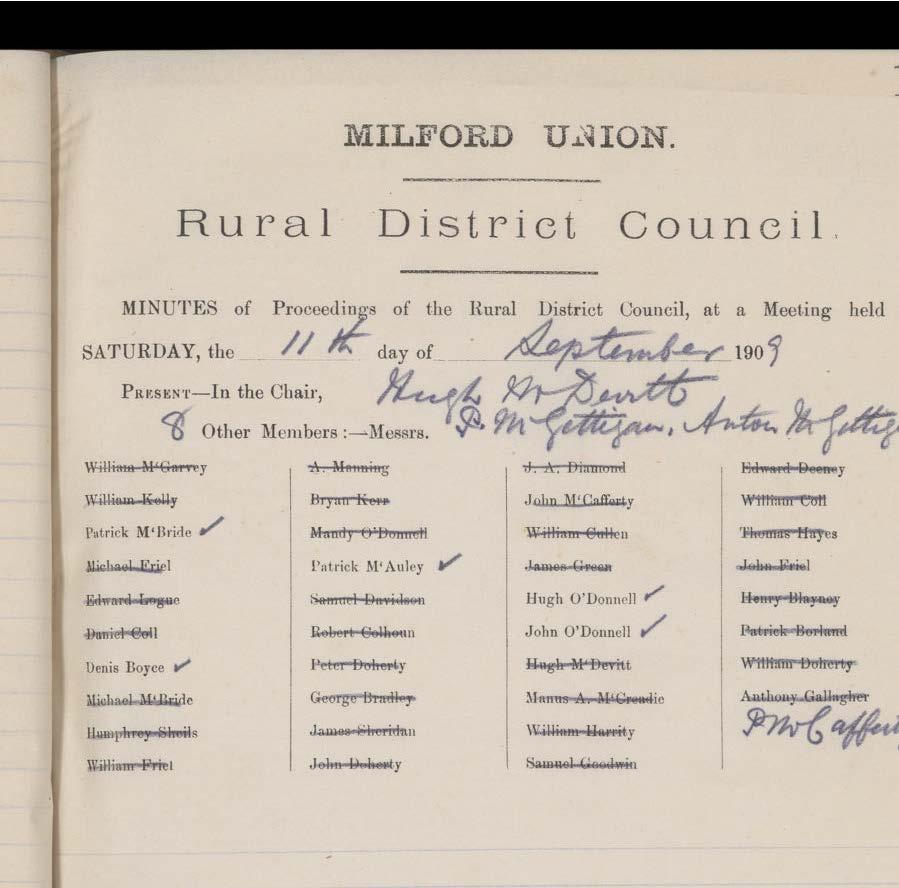 MILFORD UNION.
Rural District Council.
MINUTES of Proceedings of the Rural District Council, at a Meeting held
SATURDAY, the 11th day of September 1909
PRESENT—In the Chair, Hugh McDevitt
8 Other Members:—Messrs. P. McGettigan, Anton McGettig
William M'Garvey
William Kelly
Patrick M'Bride ✓
Michael Friel
Edward Logue
Daniel Coll
Denis Boyce ✓
Michael M'Bride
Humphrey Sheils
William Friel
A. Manning
Bryan Kerr
Mandy O'Donnell
Patrick M'Auley ✓
Samuel Davidson
Robert Colhoun
Peter Doherty
George Bradley
James Sheridan
John Doherty
J. A. Diamond
John M'Cafferty
William Cullen
James Green
Hugh O'Donnell ✓
John O'Donnell ✓
Hugh M'Devitt
Manus A. M'Creadie
William Harrity
Samuel Goodwin
Edward Deeney
William Coll
Thomas Hayes
John Friel
Henry Blayney
Patrick Borland
William Doherty
Anthony Gallagher
P McCaffer